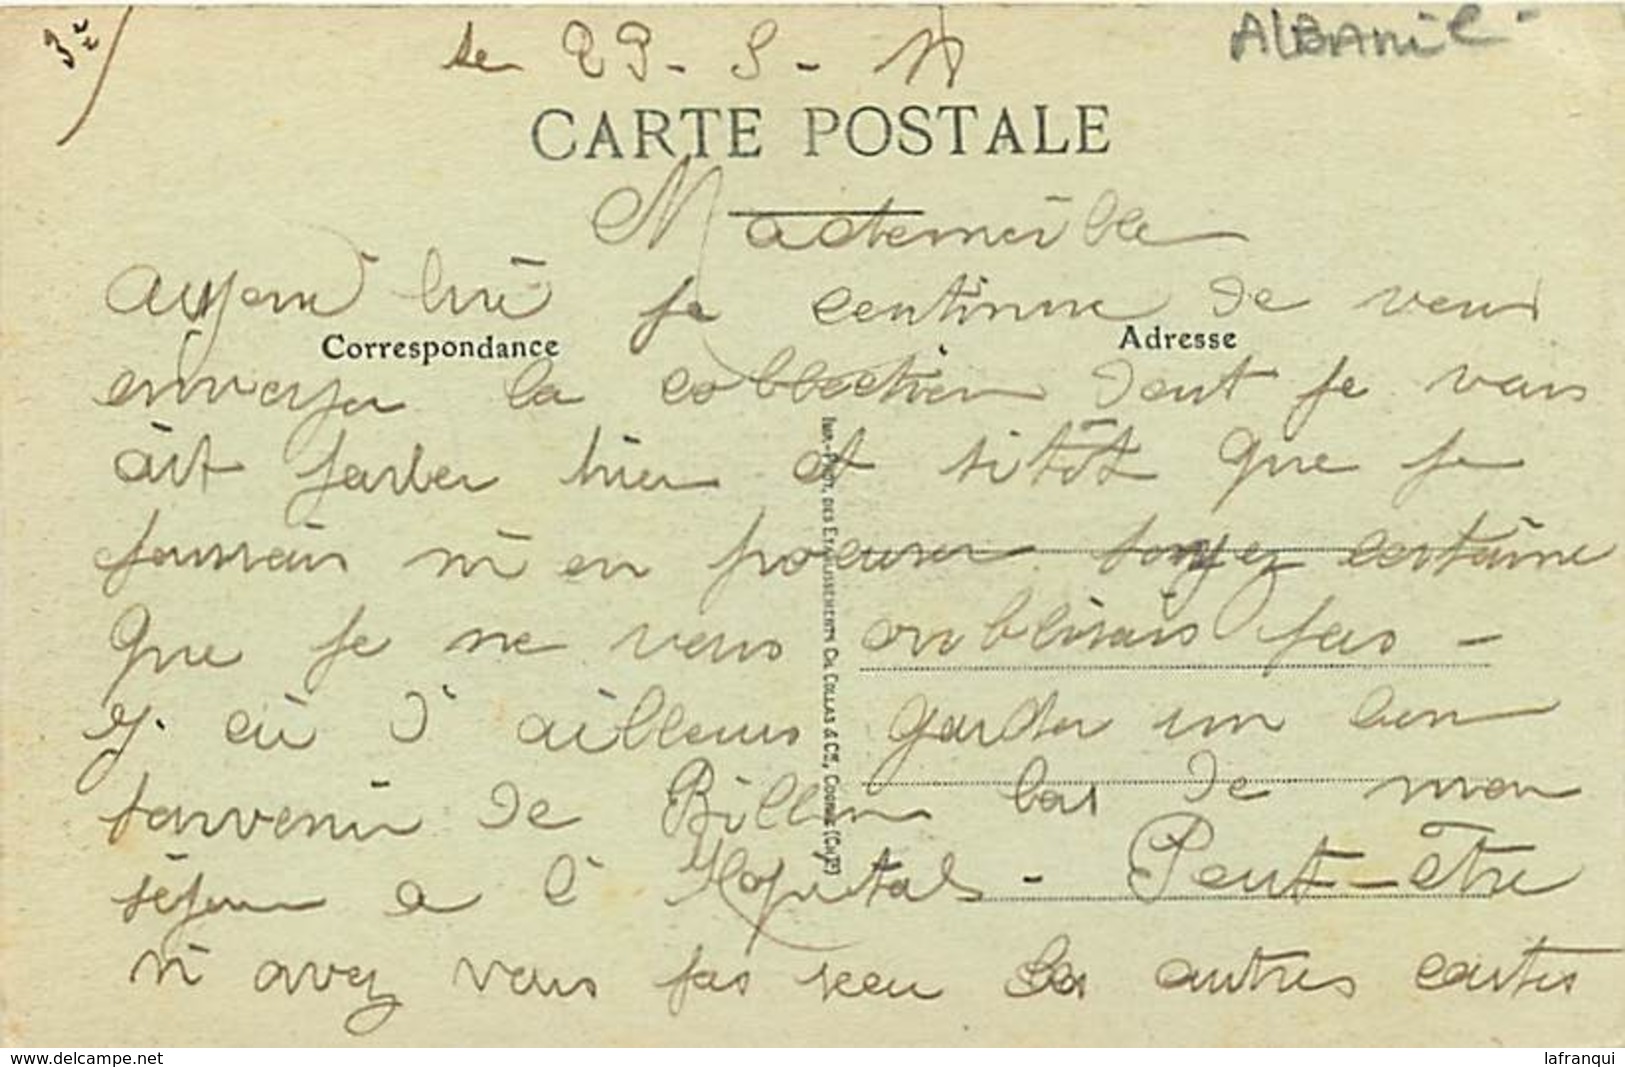 3e
le 29-5-17
ALBANIE
CARTE POSTALE
Mademoiselle
aujour hui je continue de vous
Correspondance
Adresse
envoyer la collection dont je vous
ait parler hier et sitôt que je
pourrais m'en procurer soyez certaine
que je ne vous oublirais pas -
J. ai d'ailleurs garder un bon
souvenir de Billom lors de mon
séjour a l'Hopital - Peut-être
n'avez vous pas reçu les autres cartes
IMP.-PHOT. DES ETABLISSEMENTS CH. COLLAS & Cie, COGNAC (Chte)
www.delcampe.net
lafranqui